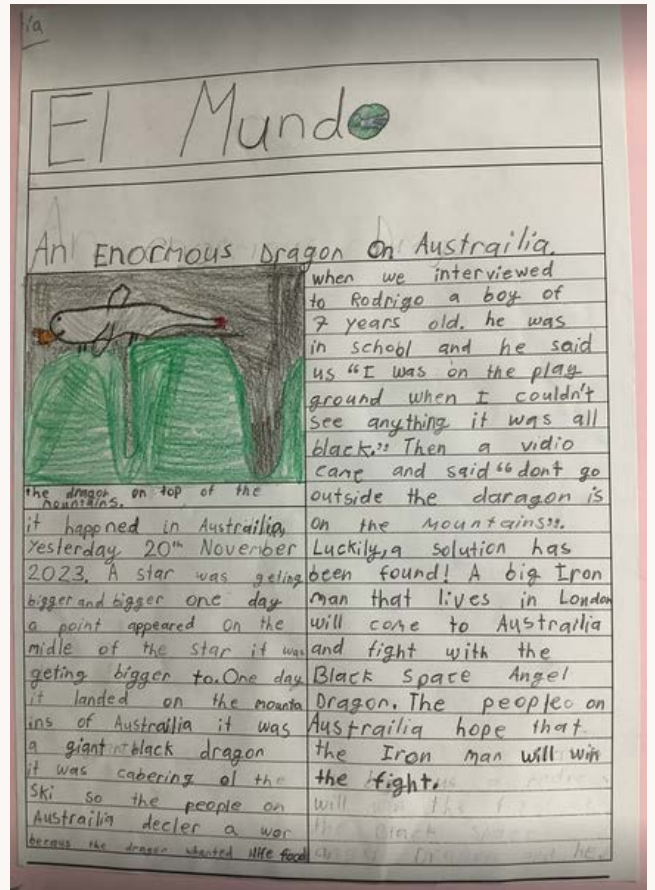 ia
El Mundo
An Enormous Dragon On Austrailia.
the dragon on top of the
mountains.
it happned in Austrailia,
Yesterday 20th November
2023. A star was geting
bigger and bigger one day
a point appeared on the
midle of the star it was
geting bigger to. One day
it landed on the mounta
ins of Austrailia it was
a giant black dragon
it was cabering ol the
Ski so the people on
Austrailia decler a wor
becaus the dragon whanted life food
when we interviewed
to Rodrigo a boy of
7 years old. he was
in school and he said
us “I was on the play
ground when I couldn't
see anything it was all
black.” Then a vidio
came and said “dont go
outside the daragon is
on the mountains”.
Luckily, a solution has
been found! A big Iron
man that lives in London
will come to Austrarlia
and fight with the
Black Space Angel
Dragon. The people on
Austrailia hope that
the Iron man will win
the fight.